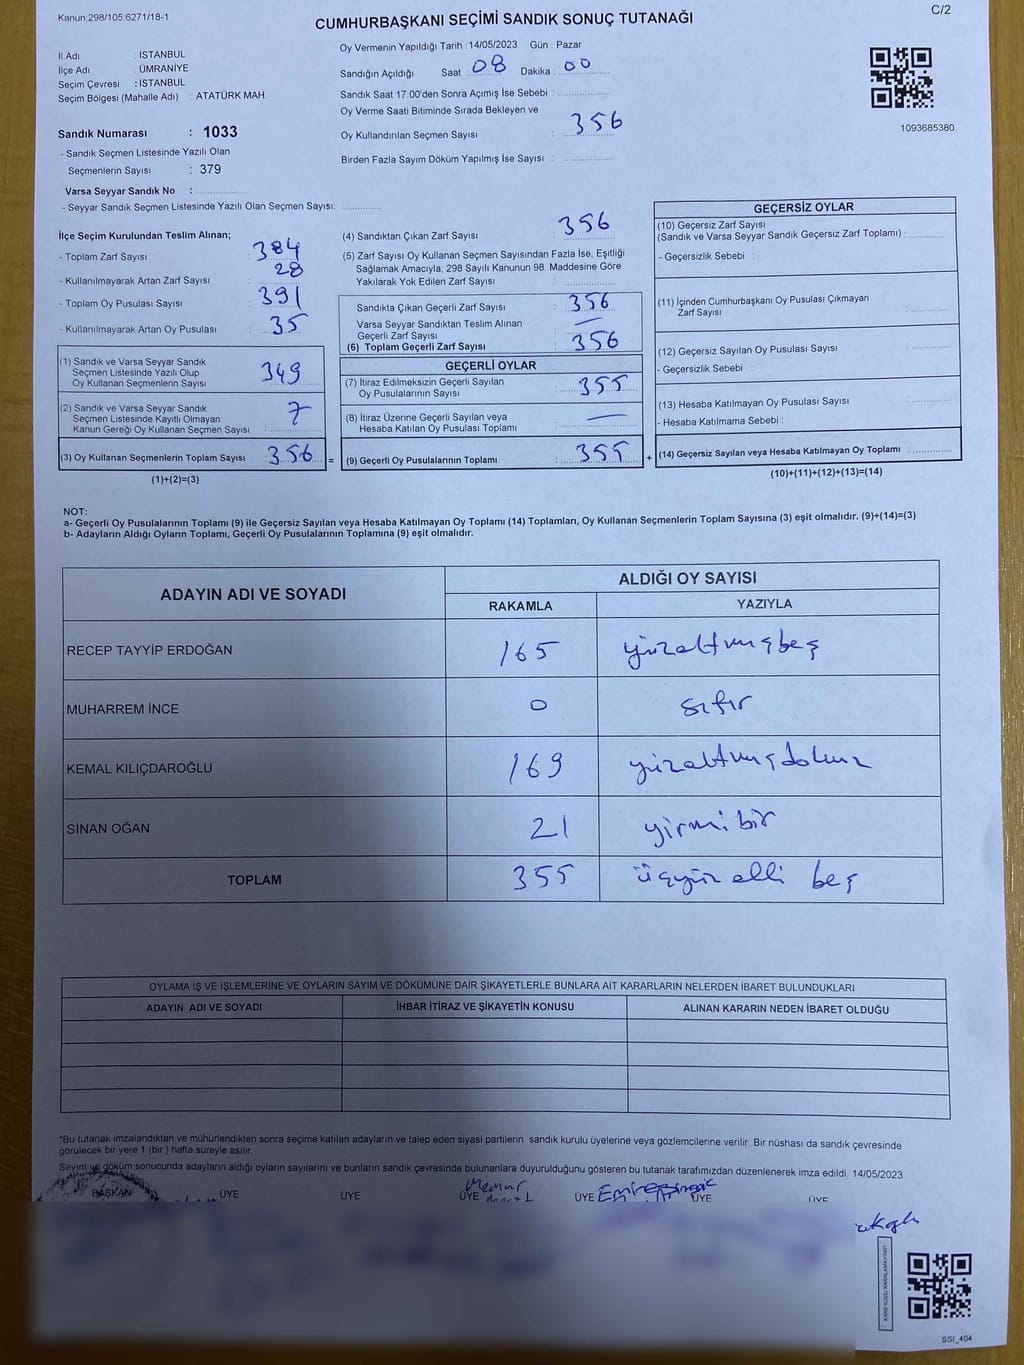 Kanun:298/105;6271/18-1
C/2
CUMHURBAŞKANI SEÇİMİ SANDIK SONUÇ TUTANAĞI
İl Adı : İSTANBUL
İlçe Adı : ÜMRANİYE
Seçim Çevresi : İSTANBUL
Seçim Bölgesi (Mahalle Adı) : ATATÜRK MAH.
Sandık Numarası : 1033
- Sandık Seçmen Listesinde Yazılı Olan
Seçmenlerin Sayısı : 379
Varsa Seyyar Sandık No :
- Seyyar Sandık Seçmen Listesinde Yazılı Olan Seçmen Sayısı:
Oy Vermenin Yapıldığı Tarih : 14/05/2023 Gün : Pazar
Sandığın Açıldığı Saat : 08 Dakika : 00
Sandık Saat 17:00'den Sonra Açımış İse Sebebi :
Oy Verme Saati Bitiminde Sırada Bekleyen ve
Oy Kullandırılan Seçmen Sayısı : 356
Birden Fazla Sayım Döküm Yapılmış İse Sayısı :
1093685380
İlçe Seçim Kurulundan Teslim Alınan;
- Toplam Zarf Sayısı : 384
- Kullanılmayarak Artan Zarf Sayısı : 28
- Toplam Oy Pusulası Sayısı : 391
- Kullanılmayarak Artan Oy Pusulası : 35
(1) Sandık ve Varsa Seyyar Sandık
Seçmen Listesinde Yazılı Olup
Oy Kullanan Seçmenlerin Sayısı : 349
(2) Sandık ve Varsa Seyyar Sandık
Seçmen Listesinde Kayıtlı Olmayan
Kanun Gereği Oy Kullanan Seçmen Sayısı : 7
(3) Oy Kullanan Seçmenlerin Toplam Sayısı : 356 =
(1)+(2)=(3)
(4) Sandıktan Çıkan Zarf Sayısı : 356
(5) Zarf Sayısı Oy Kullanan Seçmen Sayısından Fazla İse, Eşitliği
Sağlamak Amacıyla; 298 Sayılı Kanunun 98. Maddesine Göre
Yakılarak Yok Edilen Zarf Sayısı :
Sandıkta Çıkan Geçerli Zarf Sayısı : 356
Varsa Seyyar Sandıktan Teslim Alınan
Geçerli Zarf Sayısı : —
(6) Toplam Geçerli Zarf Sayısı : 356
GEÇERLİ OYLAR
(7) İtiraz Edilmeksizin Geçerli Sayılan
Oy Pusulalarının Sayısı : 355
(8) İtiraz Üzerine Geçerli Sayılan veya
Hesaba Katılan Oy Pusulası Toplamı : —
(9) Geçerli Oy Pusulalarının Toplamı : 355 +
GEÇERSİZ OYLAR
(10) Geçersiz Zarf Sayısı
(Sandık ve Varsa Seyyar Sandık Geçersiz Zarf Toplamı) :
- Geçersizlik Sebebi :
(11) İçinden Cumhurbaşkanı Oy Pusulası Çıkmayan
Zarf Sayısı :
(12) Geçersiz Sayılan Oy Pusulası Sayısı :
- Geçersizlik Sebebi :
(13) Hesaba Katılmayan Oy Pusulası Sayısı :
- Hesaba Katılmama Sebebi :
(14) Geçersiz Sayılan veya Hesaba Katılmayan Oy Toplamı :
(10)+(11)+(12)+(13)=(14)
NOT:
a- Geçerli Oy Pusulalarının Toplamı (9) ile Geçersiz Sayılan veya Hesaba Katılmayan Oy Toplamı (14) Toplamları, Oy Kullanan Seçmenlerin Toplam Sayısına (3) eşit olmalıdır. (9)+(14)=(3)
b- Adayların Aldığı Oyların Toplamı, Geçerli Oy Pusulalarının Toplamına (9) eşit olmalıdır.
ADAYIN ADI VE SOYADI
ALDIĞI OY SAYISI
RAKAMLA YAZIYLA
RECEP TAYYİP ERDOĞAN 165 yüzaltmışbeş
MUHARREM İNCE 0 sıfır
KEMAL KILIÇDAROĞLU 169 yüzaltmışdokuz
SİNAN OĞAN 21 yirmibir
TOPLAM 355 üçyüz elli beş
OYLAMA İŞ VE İŞLEMLERİNE VE OYLARIN SAYIM VE DÖKÜMÜNE DAİR ŞİKAYETLERLE BUNLARA AİT KARARLARIN NELERDEN İBARET BULUNDUKLARI
ADAYIN ADI VE SOYADI İHBAR İTİRAZ VE ŞİKAYETİN KONUSU ALINAN KARARIN NEDEN İBARET OLDUĞU
*Bu tutanak imzalandıktan ve mühürlendikten sonra seçime katılan adayların ve talep eden siyasi partilerin sandık kurulu üyelerine veya gözlemcilerine verilir Bir nüshası da sandık çevresinde
görülecek bir yere 1 (bir ) hafta süreyle asılır.
Sayım ve döküm sonucunda adayların aldığı oyların sayılarını ve bunların sandık çevresinde bulunanlara duyurulduğunu gösteren bu tutanak tarafımızdan düzenlenerek imza edildi. 14/05/2023
BAŞKAN ÜYE ÜYE ÜYE ÜYE ÜYE ÜYE
Memur
KARE KODU KARALAMAYINIZ!
SSI_404